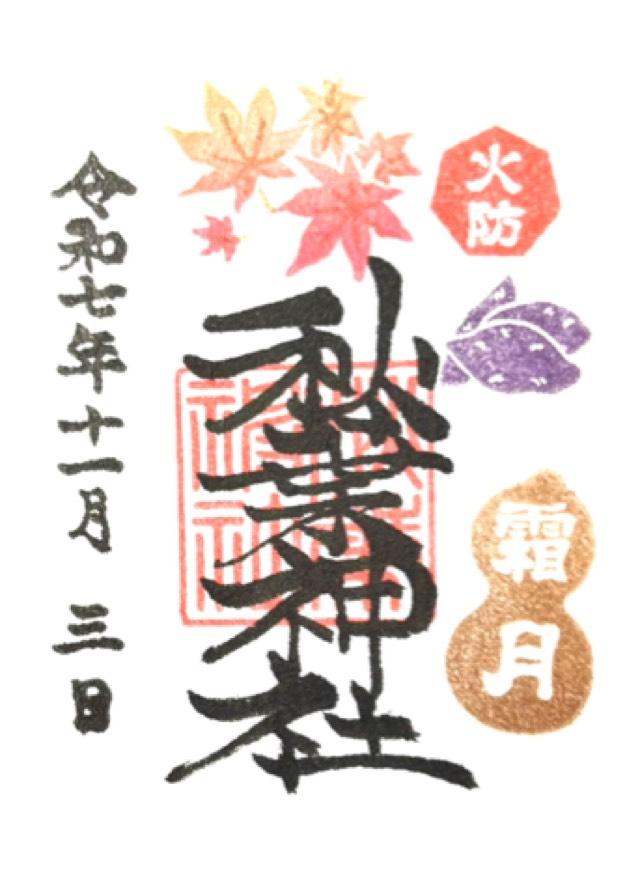 火防
霜月
秋葉神社
令和七年十一月 三日